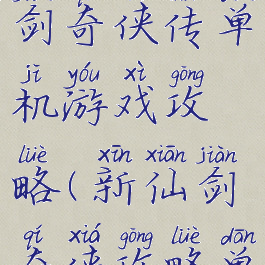 剑奇侠传单
jī yóu xì gōng
机游戏攻
lüè xīn xiān jiàn
略(新仙剑
qí xiá gōng lüè dān
奇侠攻略单